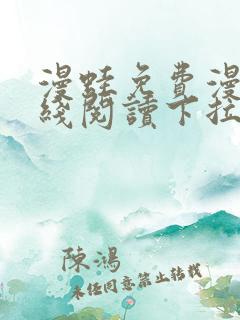 漫蛙免費漫
綫閱讀下拉
陳鴻
未經同意禁止轉載